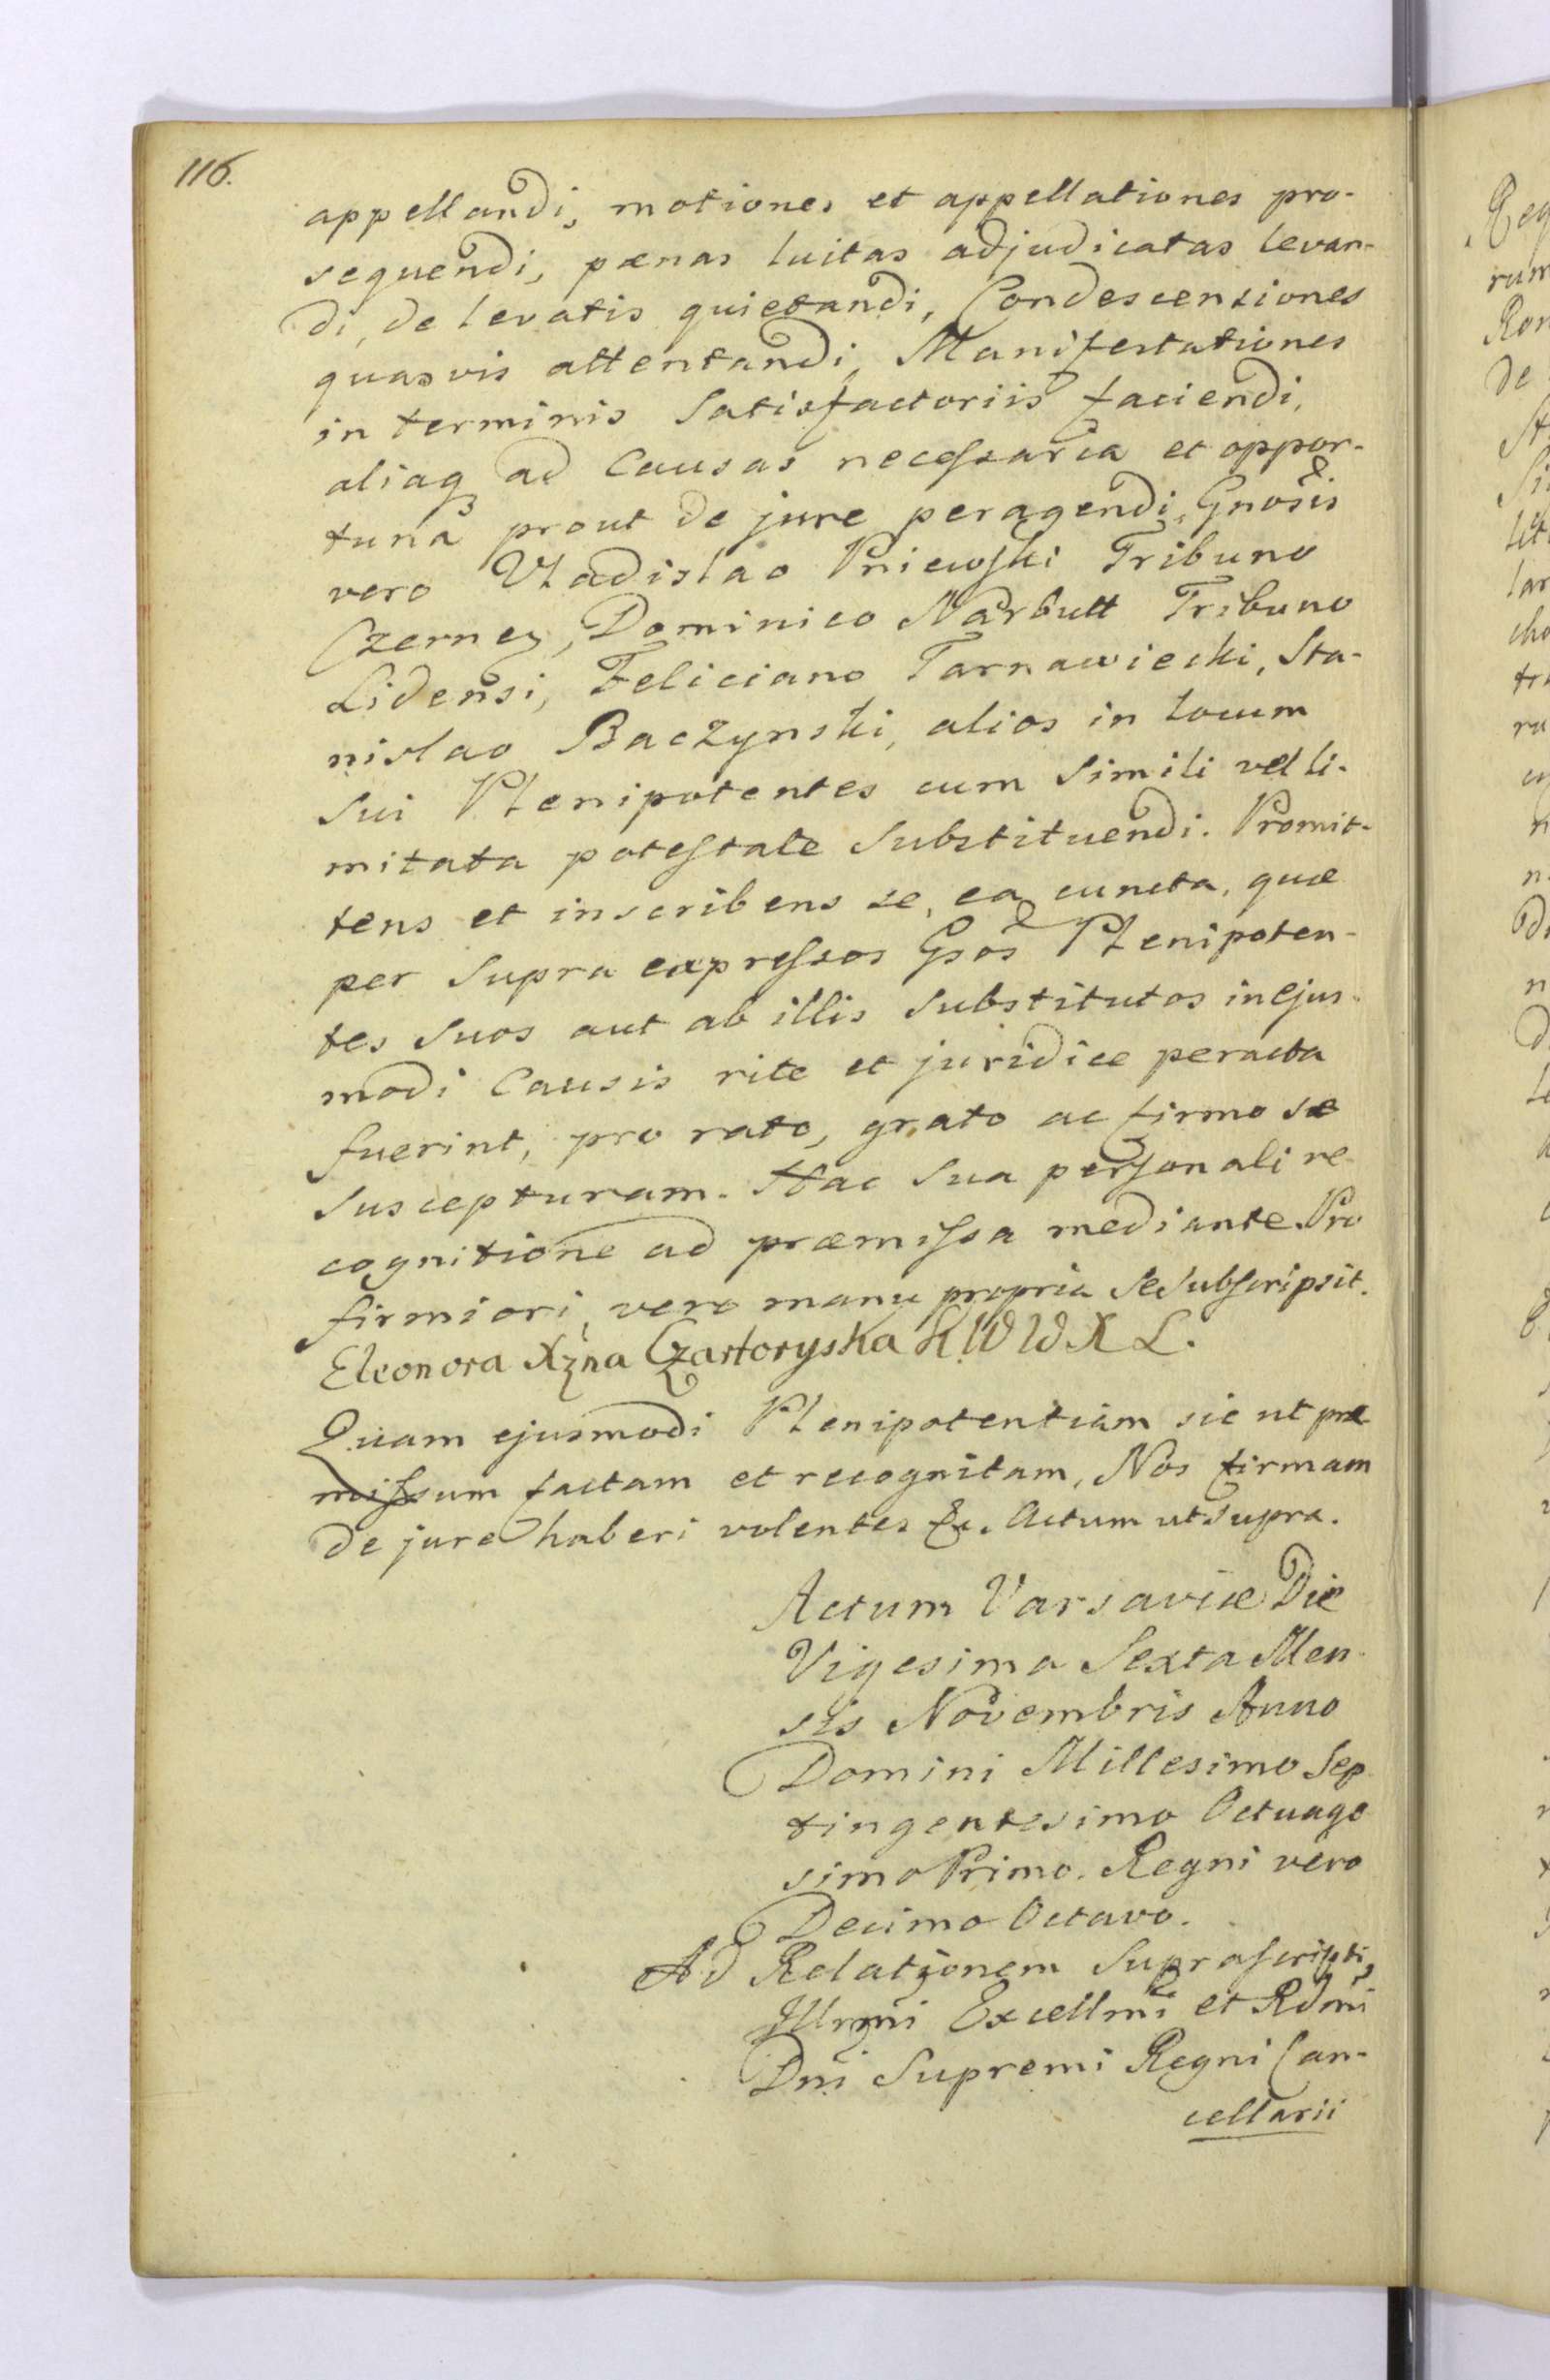 116.
appellandi, motiones et appellationes pro-
sequendi, pænas luitas adjudicatas levan-
di, de levatis quietandi, Condescensiones
quasvis attentandi, Manifestationes
in terminis Satisfactoriis faciendi,
aliaq ad Causas necessaria et oppor-
tuna prout de jure peragendi, Gnosis
vero Vladislao Pniewski Tribuno
Czernen, Dominico Narbutt Tribuno
Lidensi, Feliciano Tarnawiecki, Sta-
nislao Baczynski, alios in locum
Sui Plenipotentes cum Simili vel li-
mitata potestate Substituendi. Promit-
tens et inscribens se, ea cuncta, quæ
per Supra expressos Gsos Plenipoten-
tes Suos aut ab illis Substitutos in ejus-
modi Causis rite et juridice peracta
fuerint, pro rato, grato ac firmo se
Suscepturam. Hac Sua personali re-
cognitione ad præmissa mediante. Pro
firmiori, vero manu propria Se Subscripsit.
Eleonora Xżna Czartoryska K. W W X L.
Quam ejusmodi Plenipotentiam sic ut præ
missum factam et recognitam, Nos firmam
de jure haberi volentes &c. Actum ut Supra.
Actum Varsaviæ Die
Vigesima Sexta Men-
sis Novembris Anno
Domini Millesimo Sep
tingentesimo Octuage
simo Primo. Regni vero
Decimo Octavo.
Ad Relationem Suprascripti,
Illmi Excellmi et Rdmi
Dni Supremi Regni Can-
cellarii